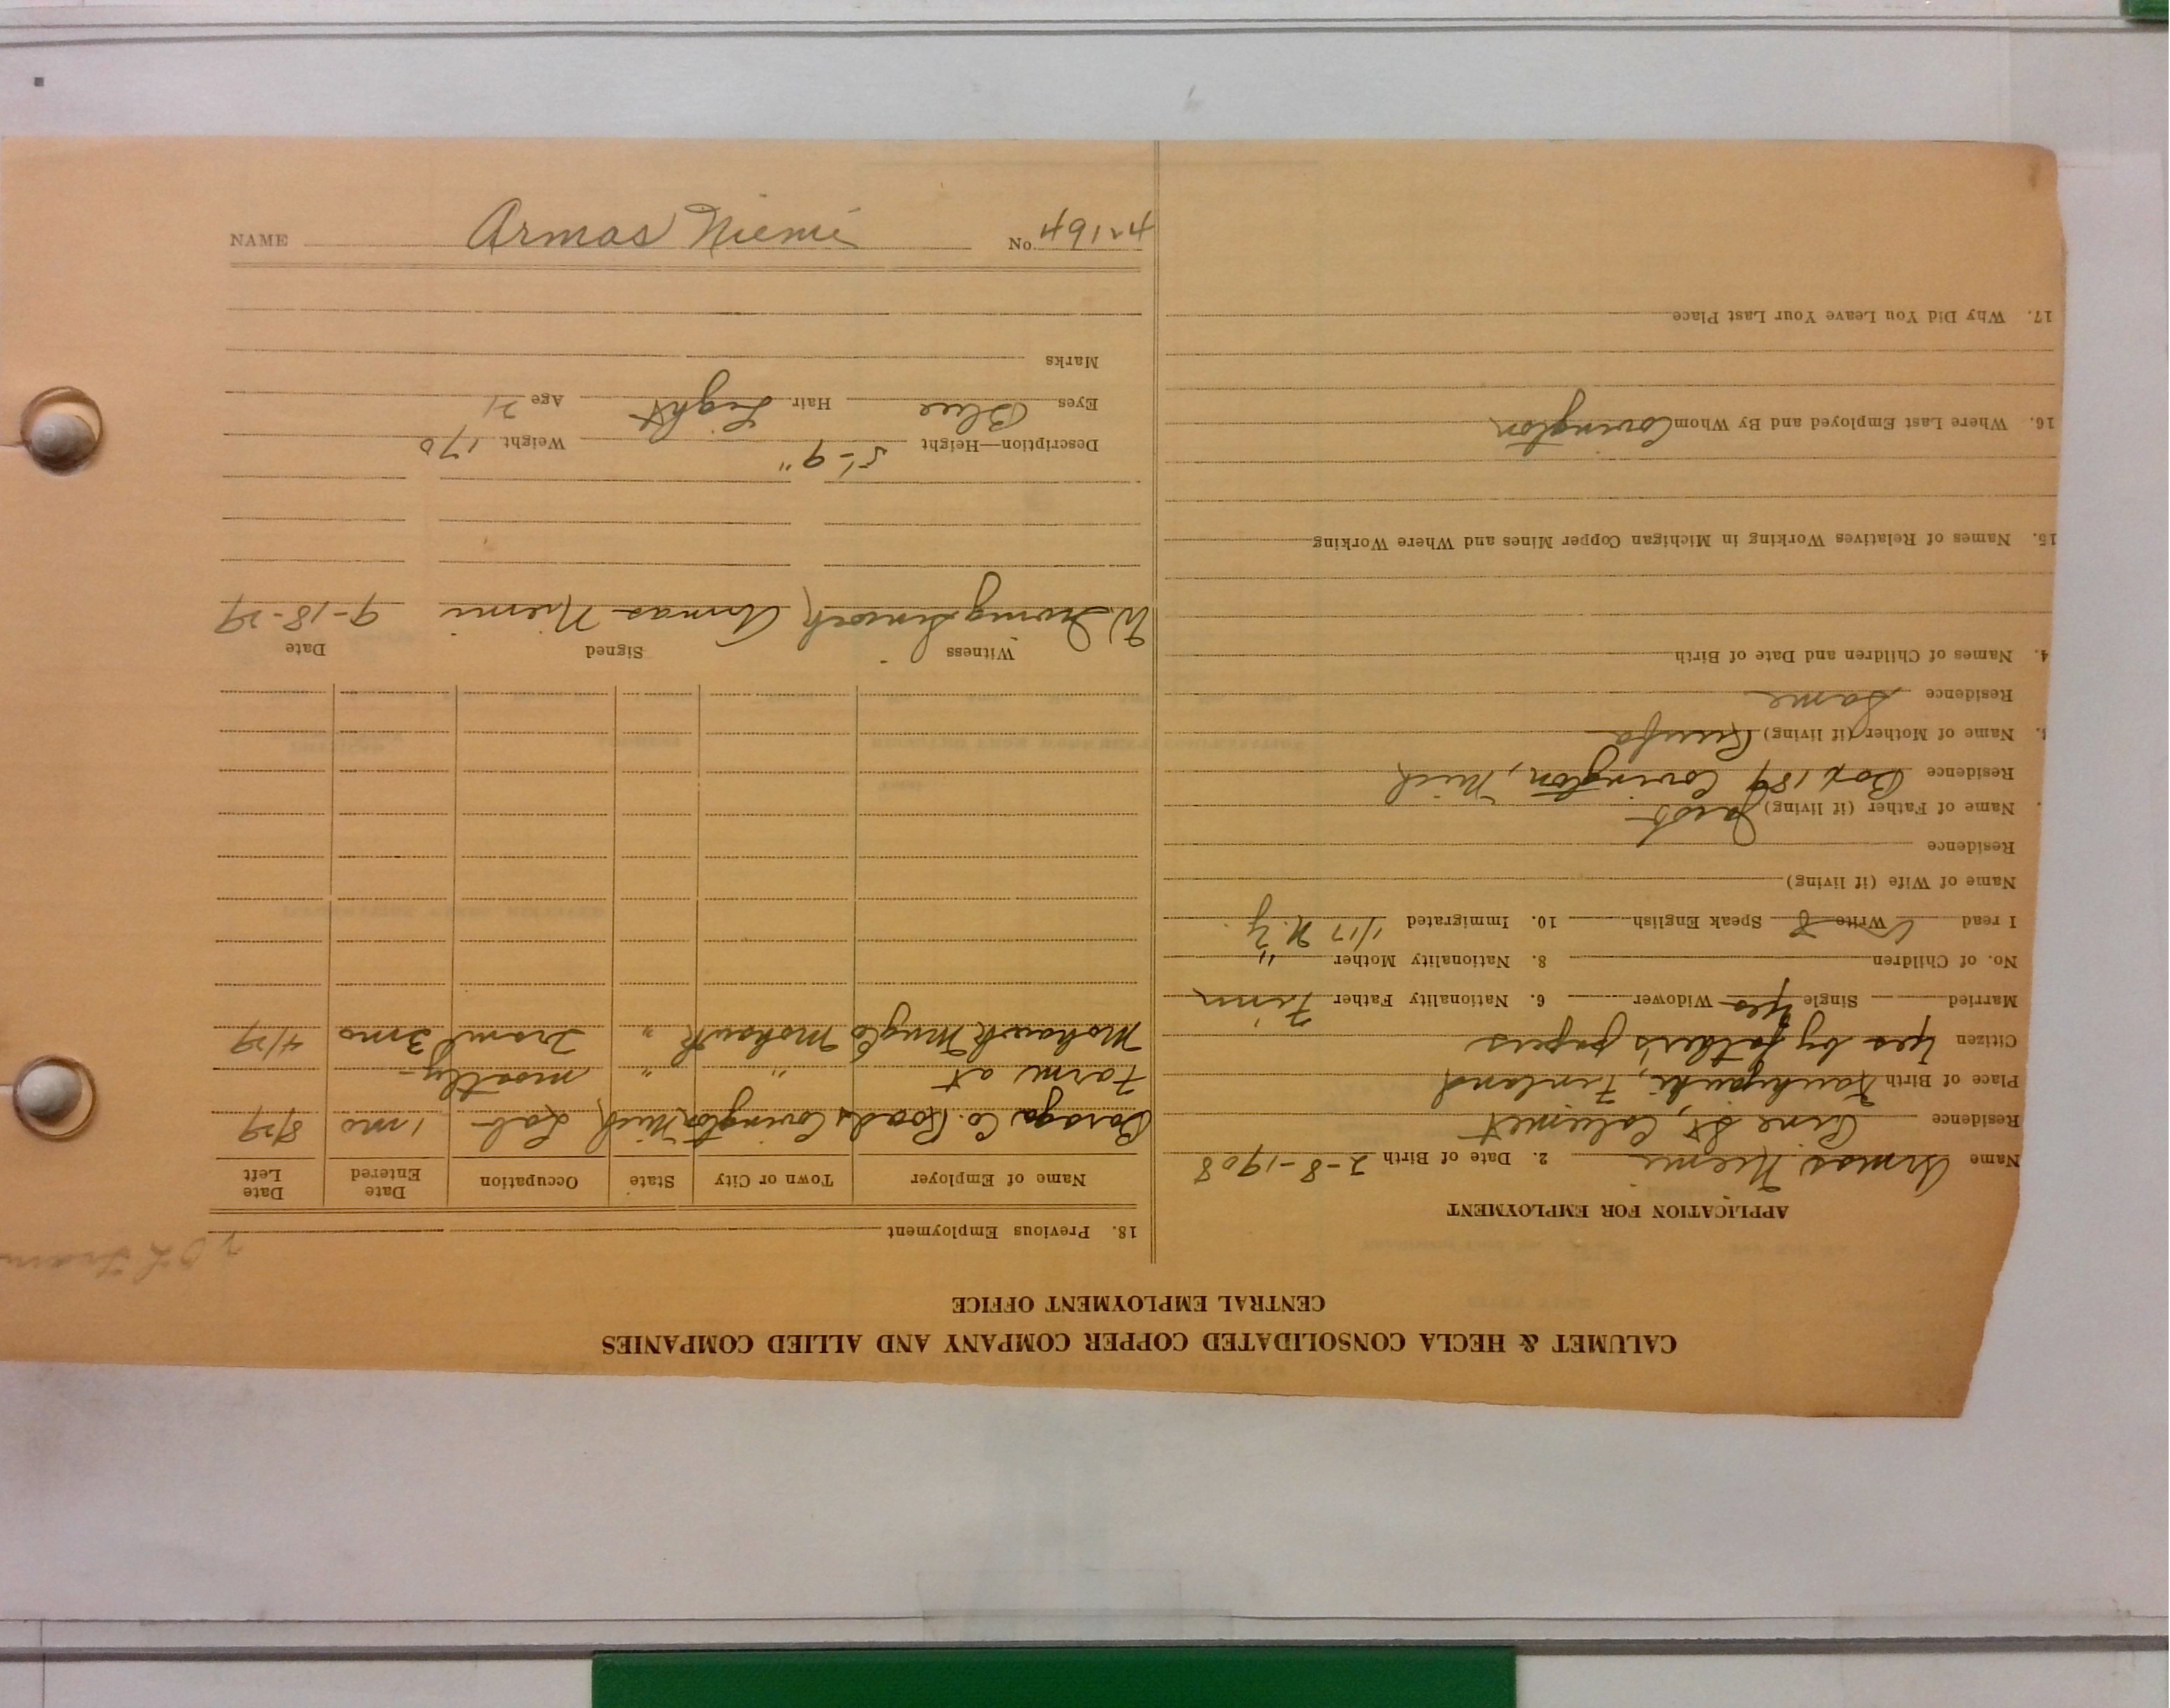 CALUMET & HECLA CONSOLIDATED COPPER COMPANY AND ALLIED COMPANIES
CENTRAL EMPLOYMENT OFFICE
APPLICATION FOR EMPLOYMENT
Name Armas Niemi 2. Date of Birth 2-8-1908
Residence Pine St, Calumet
Place of Birth Finland
Citizen Yes by father's papers
Married Single Yes Widower 6. Nationality Father Finn
No. of Children 8. Nationality Mother "
I read Write Speak English 10. Immigrated 1/17 N.Y.
Name of Wife (if living)
Residence
Name of Father (if living) Jacob
Residence Box 189 Covington, Mich
Name of Mother (if living)
Residence Same
4. Names of Children and Date of Birth
15. Names of Relatives Working in Michigan Copper Mines and Where Working
16. Where Last Employed and By Whom Covington
17. Why Did You Leave Your Last Place
18. Previous Employment
Name of Employer Town or City State Occupation Date Entered Date Left
Baraga Co. Roads Covington Mich Lab 1 mo 8/29
Farm at " " mostly
Mohawk Mng Co Mohawk " Tram 3 mo 4/29
Witness Signed Date
Armas Niemi 9-18-29
Description—Height 5'-9" Weight 170
Eyes Blue Hair Light Age 21
Marks
NAME Armas Niemi No. 49124